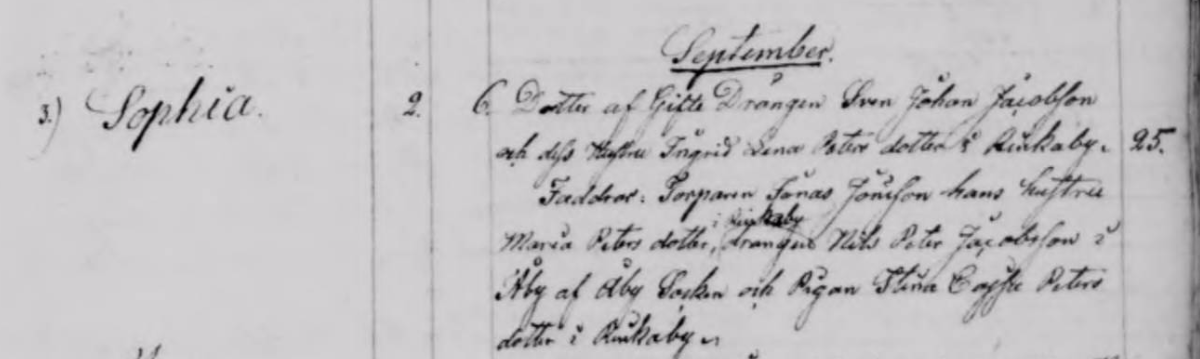 September.
3.) Sophia. 2. 6. Dotter af Gifte Drängen Sven Johan Jacobsson
och dess Hustru Ingrid Lena Peters dotter i Rinkaby. 25.
Faddrar: Torparen Jonas Jonsson hans hustru
i Rinkaby
Maria Peters dotter, drängen Nils Peter Jacobsson i
Åby af Åby Socken och Pigan Stina Cajsa Peters
dotter i Rinkaby